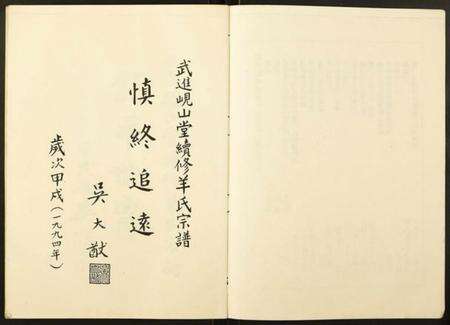 武進峴山堂續修羊氏宗譜
慎終追遠
吳大猷
歲次甲戌(一九九四年)